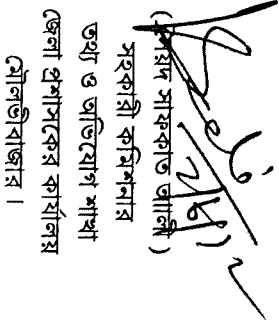 সাফকাত আলী)
সহকারী কমিশনার
তথ্য ও অভিযোগ শাখা
জেলা প্রশাসকের কার্যালয়
মৌলভীবাজার।